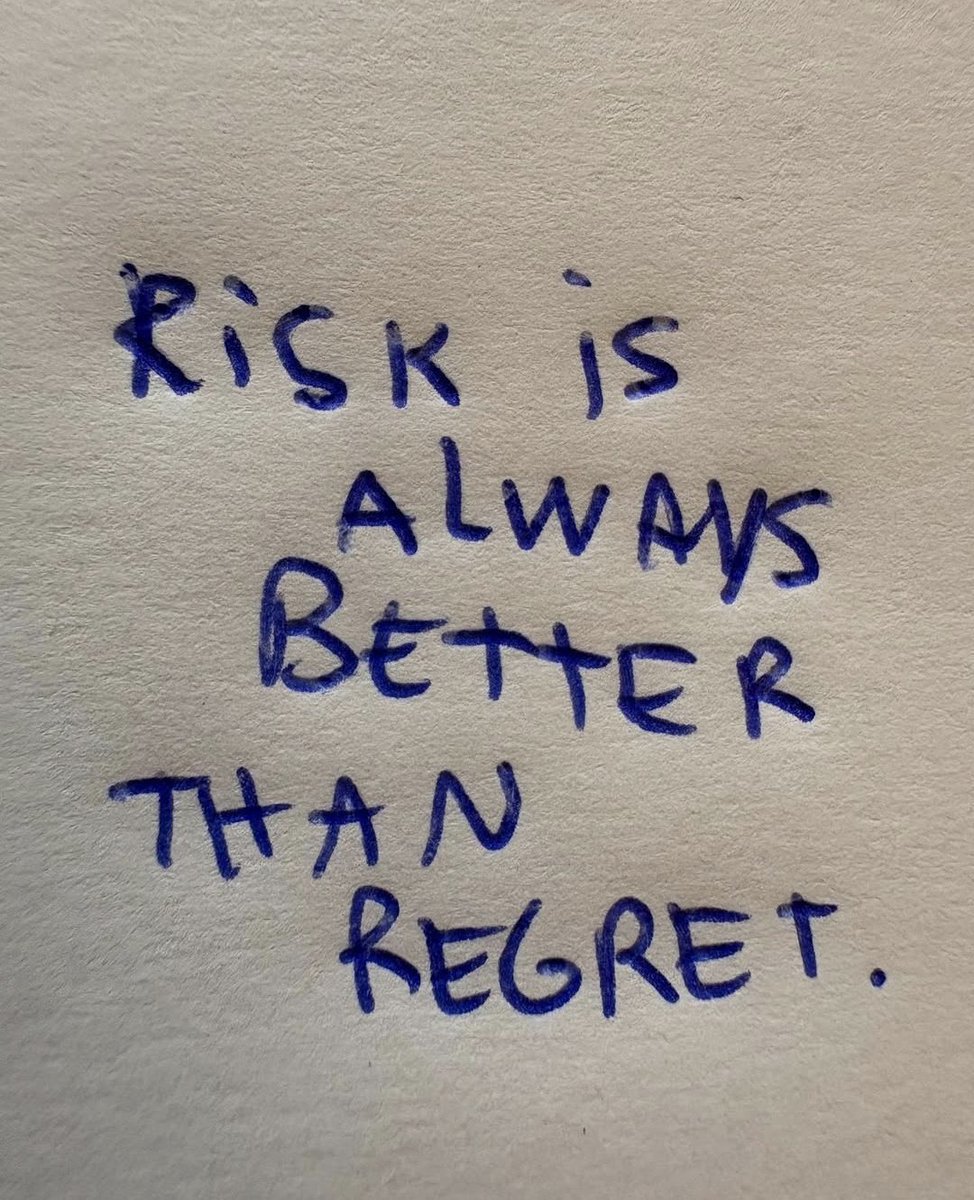 Risk is
ALWAYS
BETTER
THAN
REGRET.